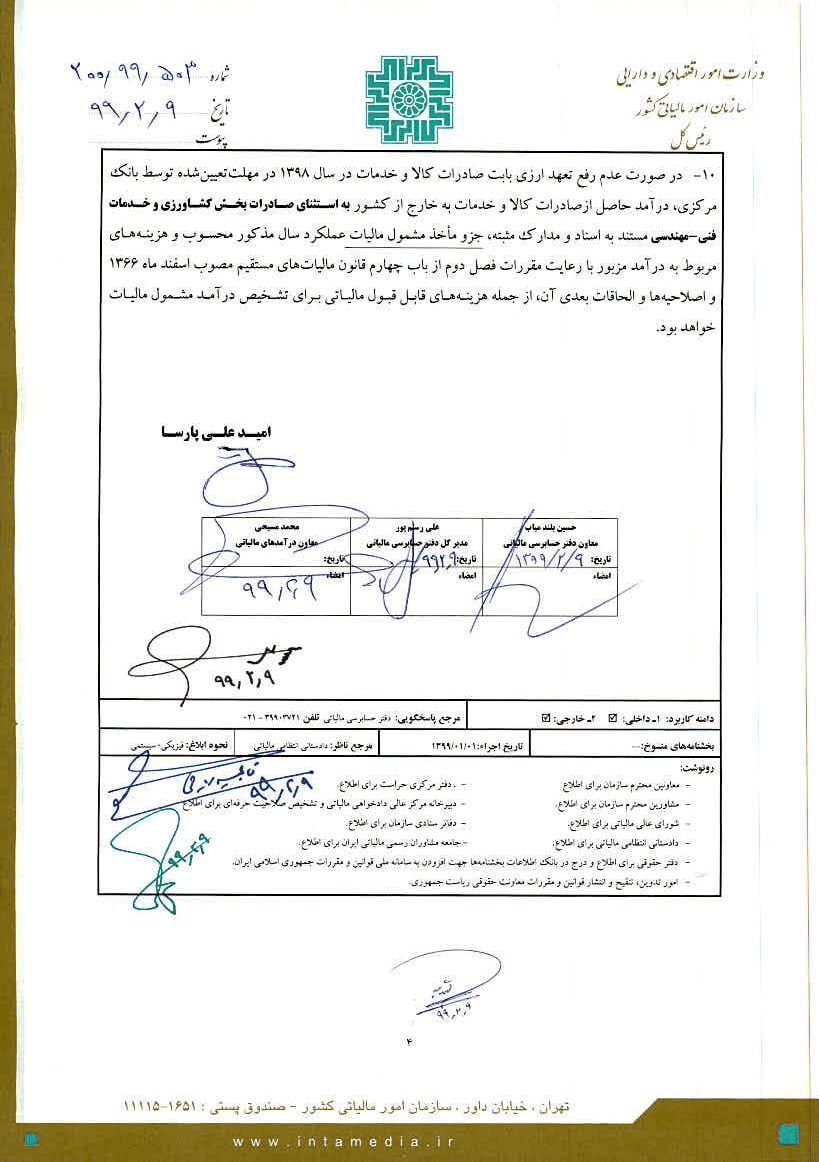 وزارت امور اقتصادی و دارایی
سازمان امور مالیاتی کشور
رئیس کل
شماره ۲۰۰/۹۹/۵۰۳
تاریخ ۹۹/۲/۹
پیوست
۱۰- در صورت عدم رفع تعهد ارزی بابت صادرات کالا و خدمات در سال ۱۳۹۸ در مهلت تعیین‌شده توسط بانک
مرکزی، درآمد حاصل از صادرات کالا و خدمات به خارج از کشور به استثنای صادرات بخش کشاورزی و خدمات
فنی-مهندسی مستند به اسناد و مدارک مثبته، جزو مأخذ مشمول مالیات عملکرد سال مذکور محسوب و هزینه‌های
مربوط به درآمد مزبور با رعایت مقررات فصل دوم از باب چهارم قانون مالیات‌های مستقیم مصوب اسفند ماه ۱۳۶۶
و اصلاحیه‌ها و الحاقات بعدی آن، از جمله هزینه‌های قابل قبول مالیاتی برای تشخیص درآمد مشمول مالیات
خواهد بود.
امید علی پارسا
حسین بلند میاب علی رستم پور محمد مسیحی
معاون دفتر حسابرسی مالیاتی مدیر کل دفتر حسابرسی مالیاتی معاون درآمدهای مالیاتی
تاریخ: ۱۳۹۹/۲/۹ تاریخ: ۹۹۲۹ تاریخ:
امضاء امضاء امضاء
۹۹/۲/۹
۹۹/۲/۹
دامنه کاربرد: ۱ـ داخلی: ☑ ۲ـ خارجی: ☑ مرجع پاسخگویی: دفتر حسابرسی مالیاتی تلفن ۳۹۹۰۳۷۲۱ - ۰۲۱
بخشنامه‌های منسوخ:--- تاریخ اجراء: ۱۳۹۹/۰۱/۰۱ مرجع ناظر: دادستانی انتظامی مالیاتی نحوه ابلاغ: فیزیکی- سیستمی
رونوشت:
- معاونین محترم سازمان برای اطلاع - . دفتر مرکزی حراست برای اطلاع.
- مشاورین محترم سازمان برای اطلاع. - دبیرخانه مرکز عالی دادخواهی مالیاتی و تشخیص صلاحیت حرفه‌ای برای اطلاع
- شورای عالی مالیاتی برای اطلاع. - دفاتر ستادی سازمان برای اطلاع.
- دادستانی انتظامی مالیاتی برای اطلاع. -جامعه مشاوران رسمی مالیاتی ایران برای اطلاع.
- دفتر حقوقی برای اطلاع و درج در بانک اطلاعات بخشنامه‌ها جهت افزودن به سامانه ملی قوانین و مقررات جمهوری اسلامی ایران.
- امور تدوین، تنقیح و انتشار قوانین و مقررات معاونت حقوقی ریاست جمهوری.
۹۹/۲/۹
۹۹/۲/۹
۹۹/۲/۹
۴
تهران ، خیابان داور ، سازمان امور مالیاتی کشور - صندوق پستی : ۱۶۵۱-۱۱۱۱۵
www.intamedia.ir